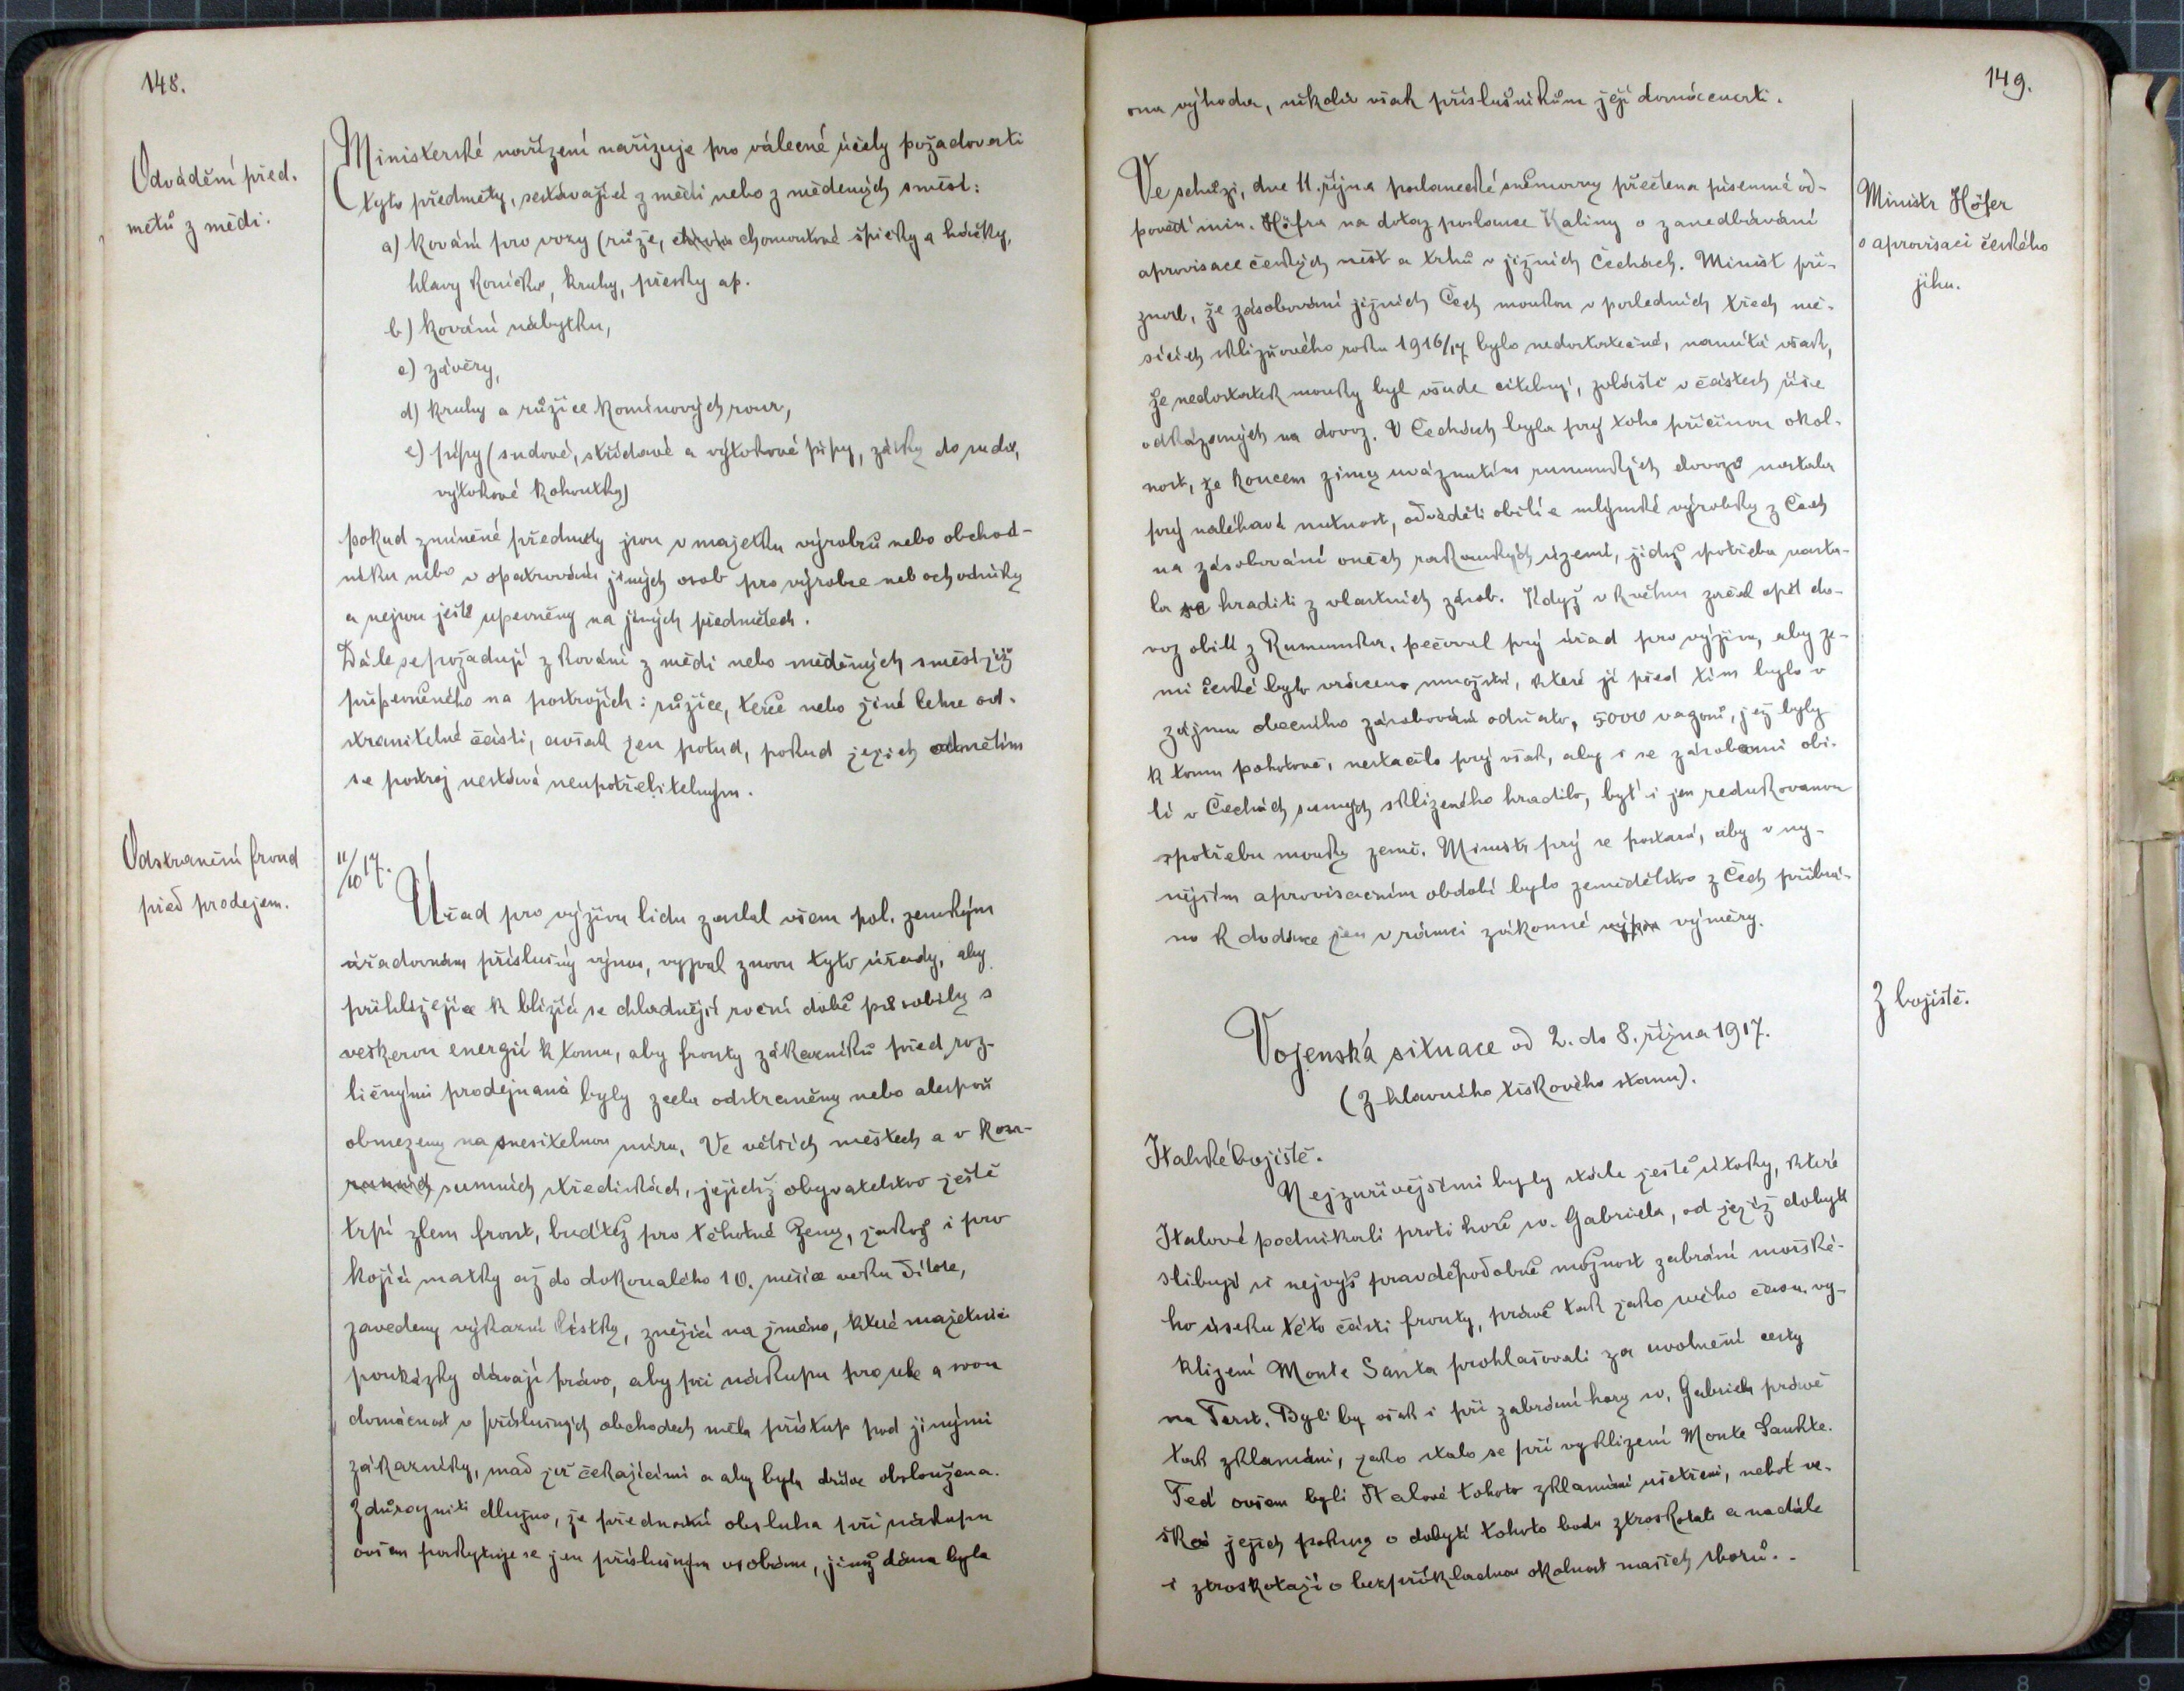 148.
Odvádění před.
mětů z mědi.
Ministerské nařízení nařizuje pro válečné účely požadovati
tyto předměty, sestávající z mědi nebo z měděných směsí:
a) kování pro vozy (růže, chomoutové špičky a háčky,
hlavy koníčka, kruhy, přesky ap.
b) kování nábytku,
c) závěry,
d) kruhy a růžice komínových rour,
e) pípy (sudové, střídavé a výtokové pípy, zátky do sudů,
výtokové kohoutky)
pokud zmíněné předměty jsou v majetku výrobců nebo obchod-
níku nebo v opatrování jiných osob pro výrobce neb ochodníky
a nejsou ještě upevněny na jiných předmětech.
Dále se požadují z kování z mědi nebo měděných směsí již
připevněného na postrojích: růžice, terče nebo jiné lehce od-
stranitelné části, avšak jen potud, pokud jejich odnětím
se postroj nestává neupotřebitelným.
Odstranění frond
před prodejem.
11/10 17.
Úřad pro výživu lidu zaslal všem pol. zemským
úřadovnám příslušný výnos, vyzval znovu tyto úřady, aby
přihlížejíce k blížící se chladnější roční době působily s
veškerou energií k tomu, aby fronty zákazníků před roz-
ličnými prodejnami byly zcela odstraněny nebo alespoň
obmezeny na snesitelnou míru. Ve větších městech a v kon-
sumních střediskách, jejichž obyvatelstvo ještě
trpí zlem front, buďtež pro těhotné ženy, jakož i pro
kojící matky až do dokonalého 10. měsíce věku dítěte,
zavedeny výkazní lístky, znějící na jméno, které majetnici
poukázky dávají právo, aby při nákupu pro sebe a svou
domácnost v příslušných obchodech měla přístup pod jinými
zákazníky, snad již čekajícími a aby byla dříve obsloužena.
Zdůrazniti dlužno, že přednostní obsluha při nákupu
ovšem poskytuje se jen příslušným osobám, jimž dána byla
149.
ona výhoda, nikoliv však příslušníkům její domácnosti.
Ve schůzi, dne 11. října poslanecké sněmovny přečtena písemná od-
pověď min. Höfra na dotaz poslance Kaliny o zanedbávání
aprovisace českých měst a trhů v jižních Čechách. Ministr při-
znal, že zásobování jižních Čech moukou v posledních třech mě-
sících sklizňového roku 1916/17 bylo nedostatečné, namítá však,
že nedostatek mouky byl všude citelný, zvláště v částech říše
odkázaných na dovoz. V Čechách byla prý toho příčinou okol-
nost, že koncem zimy uváznutím rumunských dovozů nastala
prý naléhavá nutnost, odváděti obilí a mlýnské výrobky z Čech
na zásobování oněch rakouských území, jichž spotřeba nasta-
la se hraditi z vlastních zásob. Když v květnu začal opět do-
voz obilí z Rumunska, pečoval prý úřad pro výživu, aby ze-
mi české bylo vráceno množství, které jí před tím bylo v
zájmu obecního zásobování odňato, 5000 vagonů, jež byly
k tomu pohotově, nestačilo prý však, aby i se zásobami obi-
lí v Čechách samých sklizeného hradilo, byť i jen redukovanou
spotřebu mouky země. Ministr prý se postará, aby v ny-
nějším aprovisačním období bylo zemědělstvo z Čech přibrá-
no k dodávce jen v rámci zákonné výměry.
Ministr Höfer
o aprovisaci českého
jihu.
Z bojiště.
Vojenská situace od 2. do 8. října 1917.
(Z hlavního tiskového stanu).
Italské bojiště.
Nejzuřivějšími byly stále ještě útoky, které
Italové podnikali proti hoře sv. Gabriela, od jejíž dobytí
slibují si nejvýš pravděpodobně možnost zabrání mořské-
ho úseku této části fronty, právě tak jako svého času vy-
klizení Monte Santa prohlašovali za uvolnění cesty
na Terst. Byli by však i při zabrání hory sv. Gabriela právě
tak zklamáni, jako stalo se při vyklizení Monte Sankte.
Teď ovšem byli Italové tohoto zklamání ušetřeni, neboť ve-
škeré jejich pokusy o dobytí tohoto bodu ztroskotaly a nadále
i ztroskotají o bezpříkladnou okolnost našich sborů. -